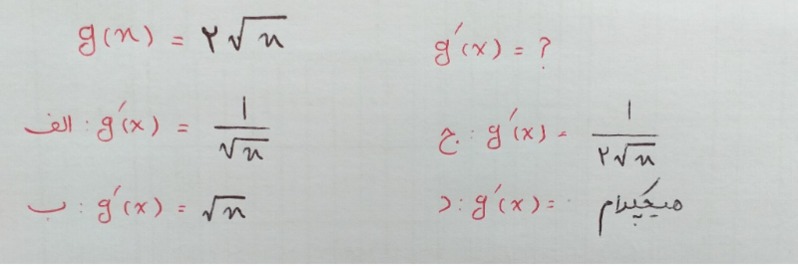 g(x) = ۲√x
g′(x) = ?
الف: g′(x) = 1/√x
ج: g′(x) = 1/۲√x
ب: g′(x) = √x
د: g′(x) = هیچکدام